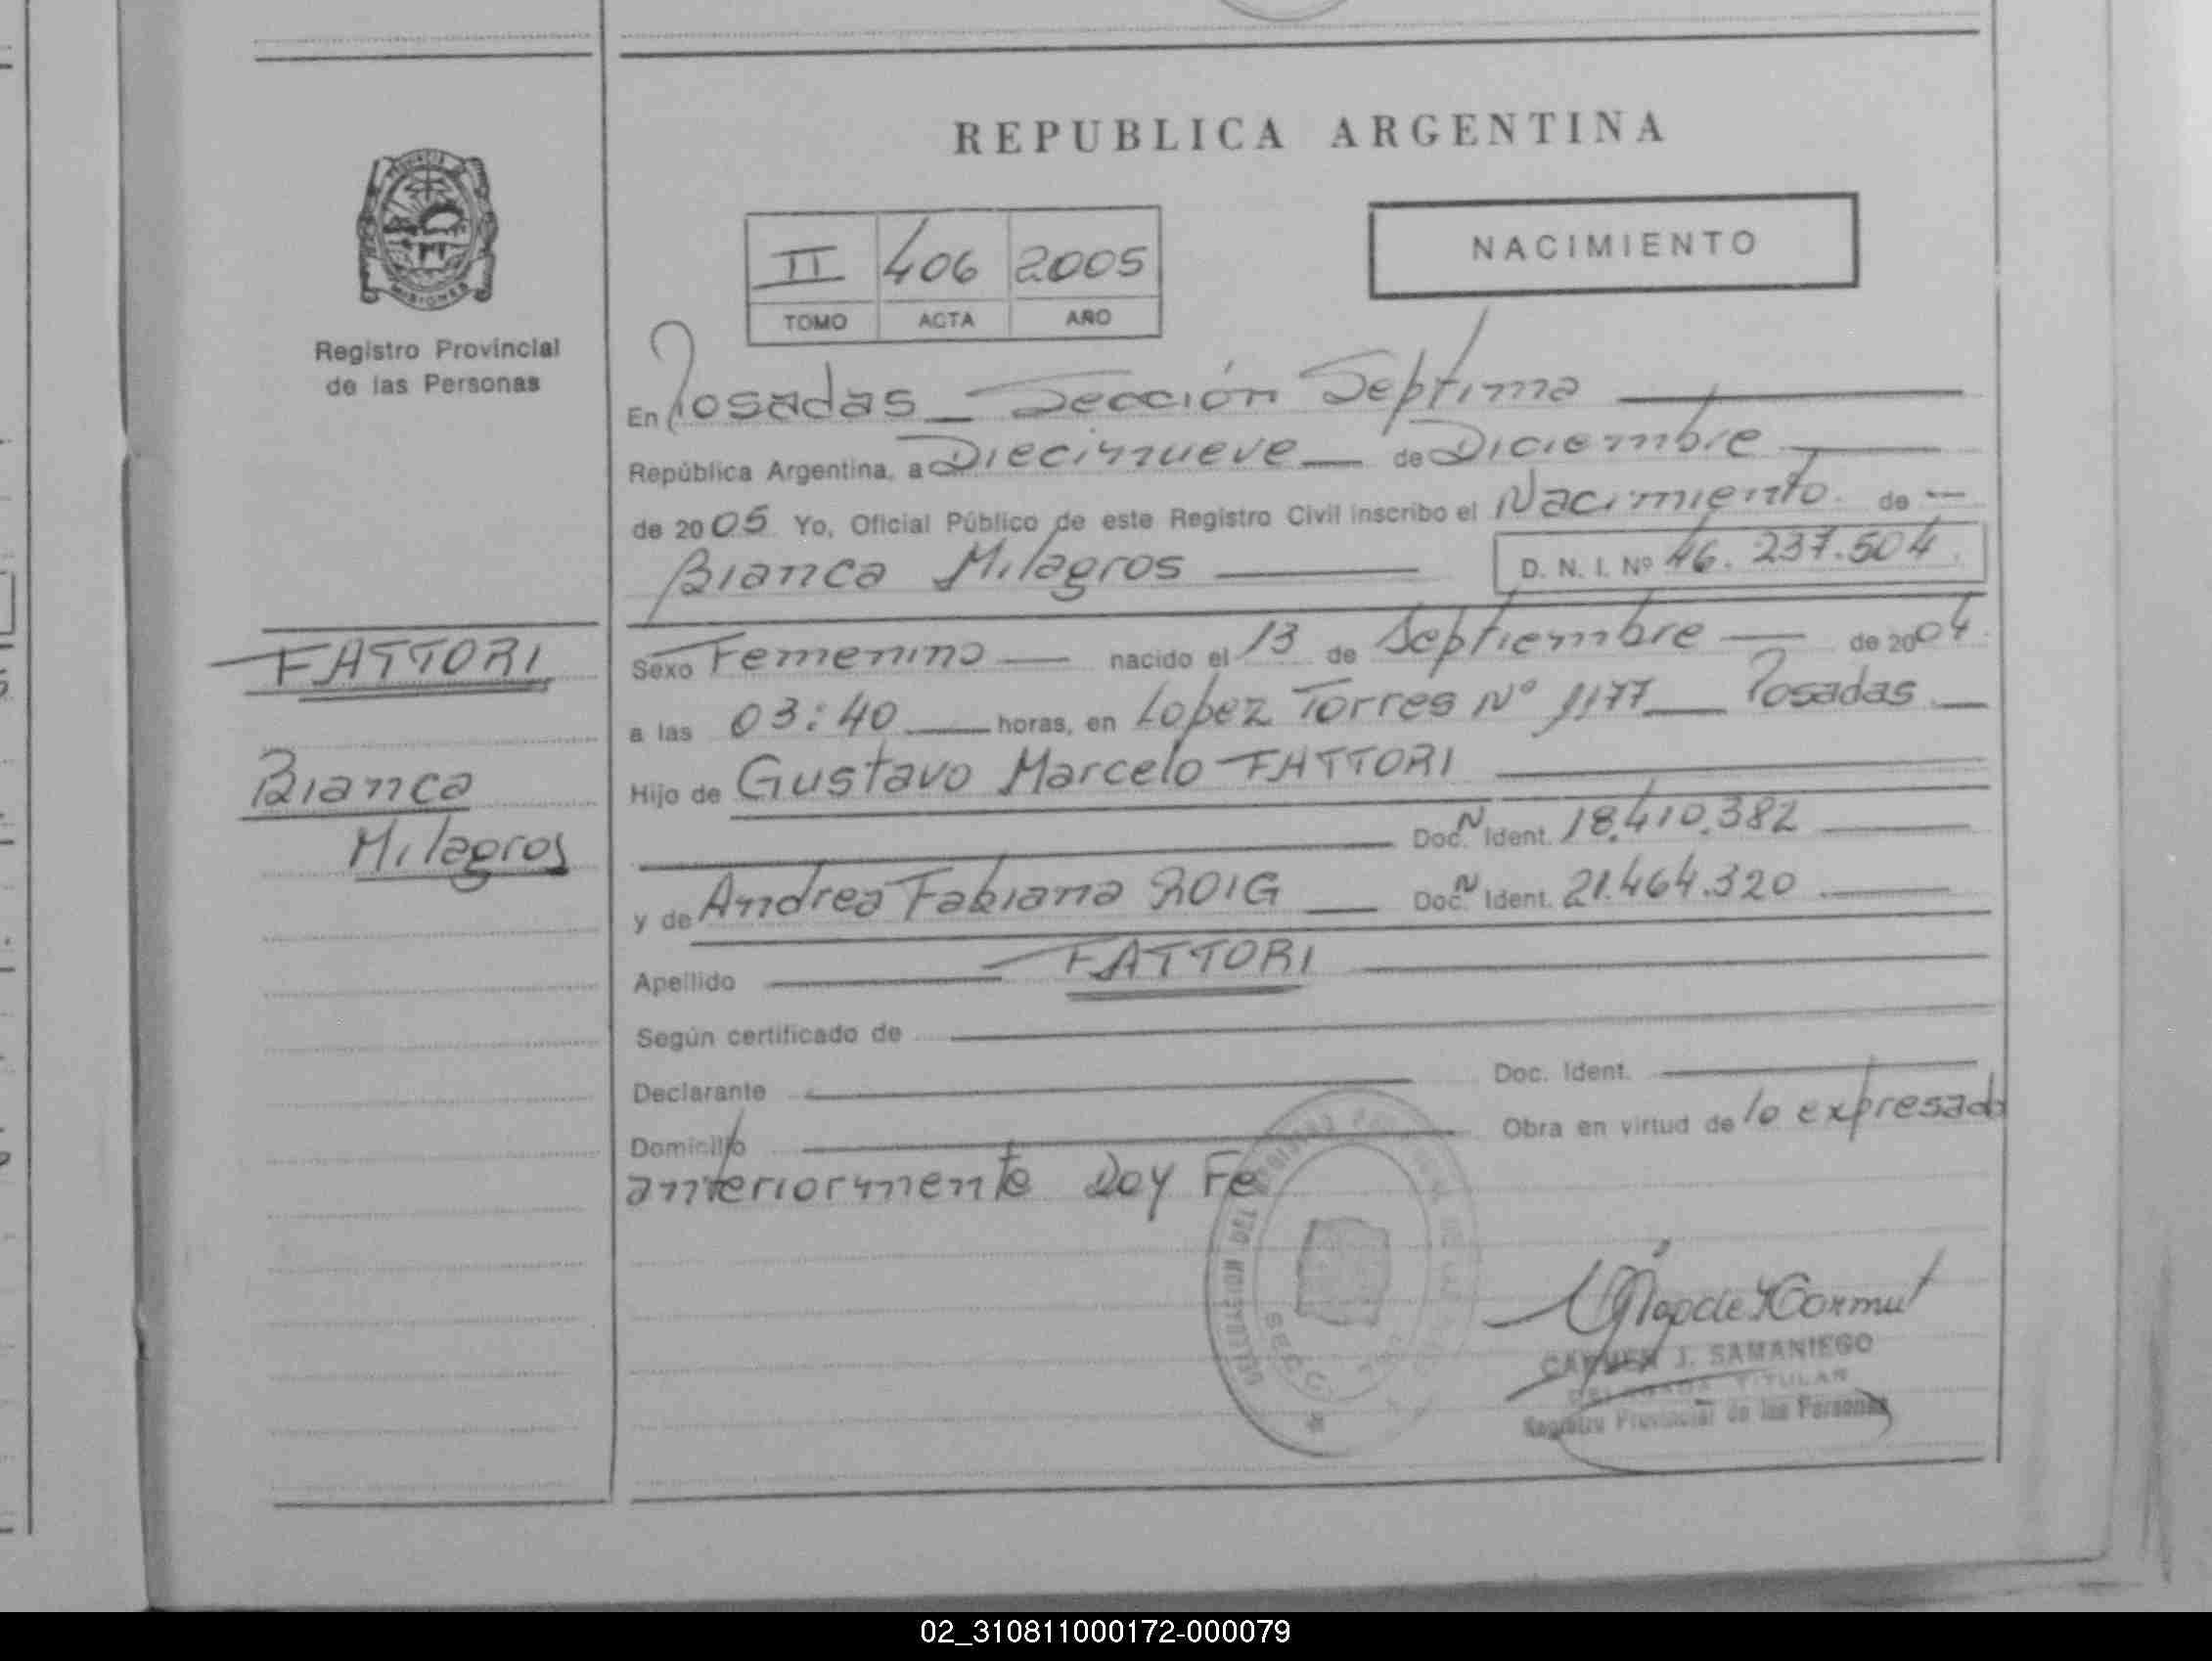 REPUBLICA ARGENTINA
PROVINCIA
MISIONES
Registro Provincial
de las Personas
II 406 2005
TOMO ACTA AÑO
NACIMIENTO
En Posadas - Sección Septima
República Argentina, a Diecinueve de Diciembre
de 2005 Yo, Oficial Público de este Registro Civil inscribo el Nacimiento de
Bianca Milagros D. N. I. Nº 46.237.504
FATTORI
Bianca
Milagros
Sexo Femenino nacido el 13 de Septiembre de 2004
a las 03:40 horas, en Lopez Torres Nº 1177 Posadas
Hijo de Gustavo Marcelo FATTORI
Doc. N Ident. 18.410.382
y de Andrea Fabiana ROIG Doc. N Ident. 21.464.320
Apellido FATTORI
Según certificado de
Declarante Doc. Ident.
Domicilio Obra en virtud de lo expresado
anteriormente Doy Fe
CARMEN J. SAMANIEGO
DELEGADA TITULAR
Registro Provincial de las Personas
02_310811000172-000079